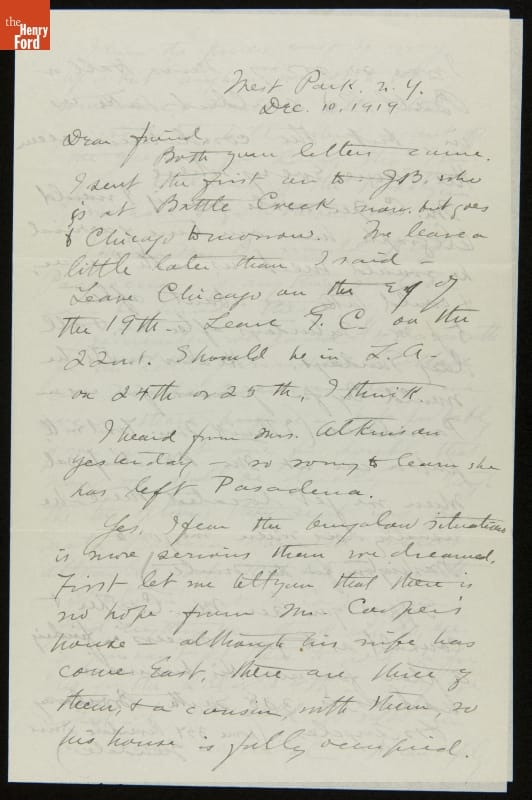 the
Henry
Ford
West Park. N.Y.
Dec. 10, 1919
Dear friend,
Both your letters came.
I sent the first on to J.B. who
is at Battle Creek now, but goes
to Chicago tomorrow. We leave a
little later than I said –
Leave Chicago on the eve of
the 19th – Leave G. C. on the
22nd. Should be in L.A.
on 24th or 25th, I think.
I heard from Mrs. Atkinson
yesterday – so sorry to learn she
has left Pasadena.
Yes, I fear the bungalow situation
is more serious than we dreamed.
First let me tell you that there is
no hope from Mr. Cooper's
house – although his wife has
come East, there are three of
them, & a cousin, with them, so
his house is fully occupied.